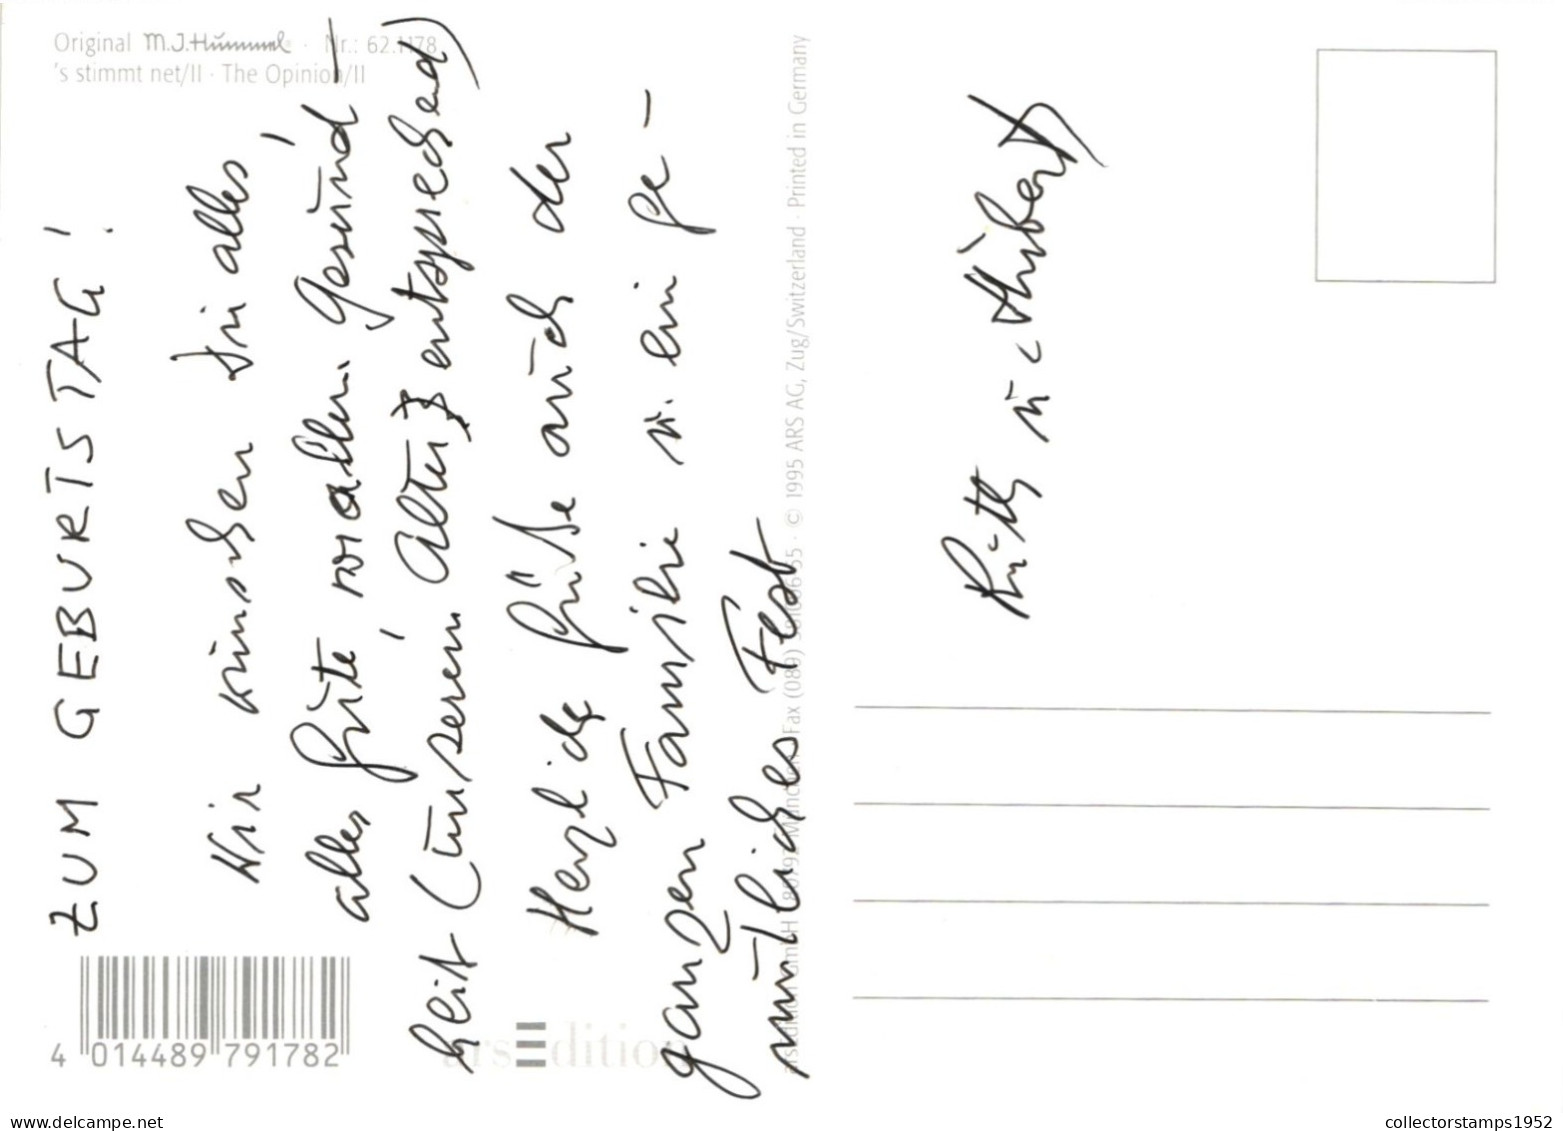 Original M.J.Hummel · Nr.: 62.1178
's stimmt net/II · The Opinion/II
ZUM GEBURTSTAG!
Wir wünschen Dir alles,
alles Gute, vor allem Gesund-
heit (unserem Alter entsprechend)
Herzliche Grüße auch der
ganzen Familie u. ein ge-
mütliches Fest
Ruth u.
4 014489 791782
ars edition
ars edition GmbH · 80792 München · Fax (089) · © 1995 ARS AG, Zug/Switzerland · Printed in Germany
www.delcampe.net
collectorstamps1952